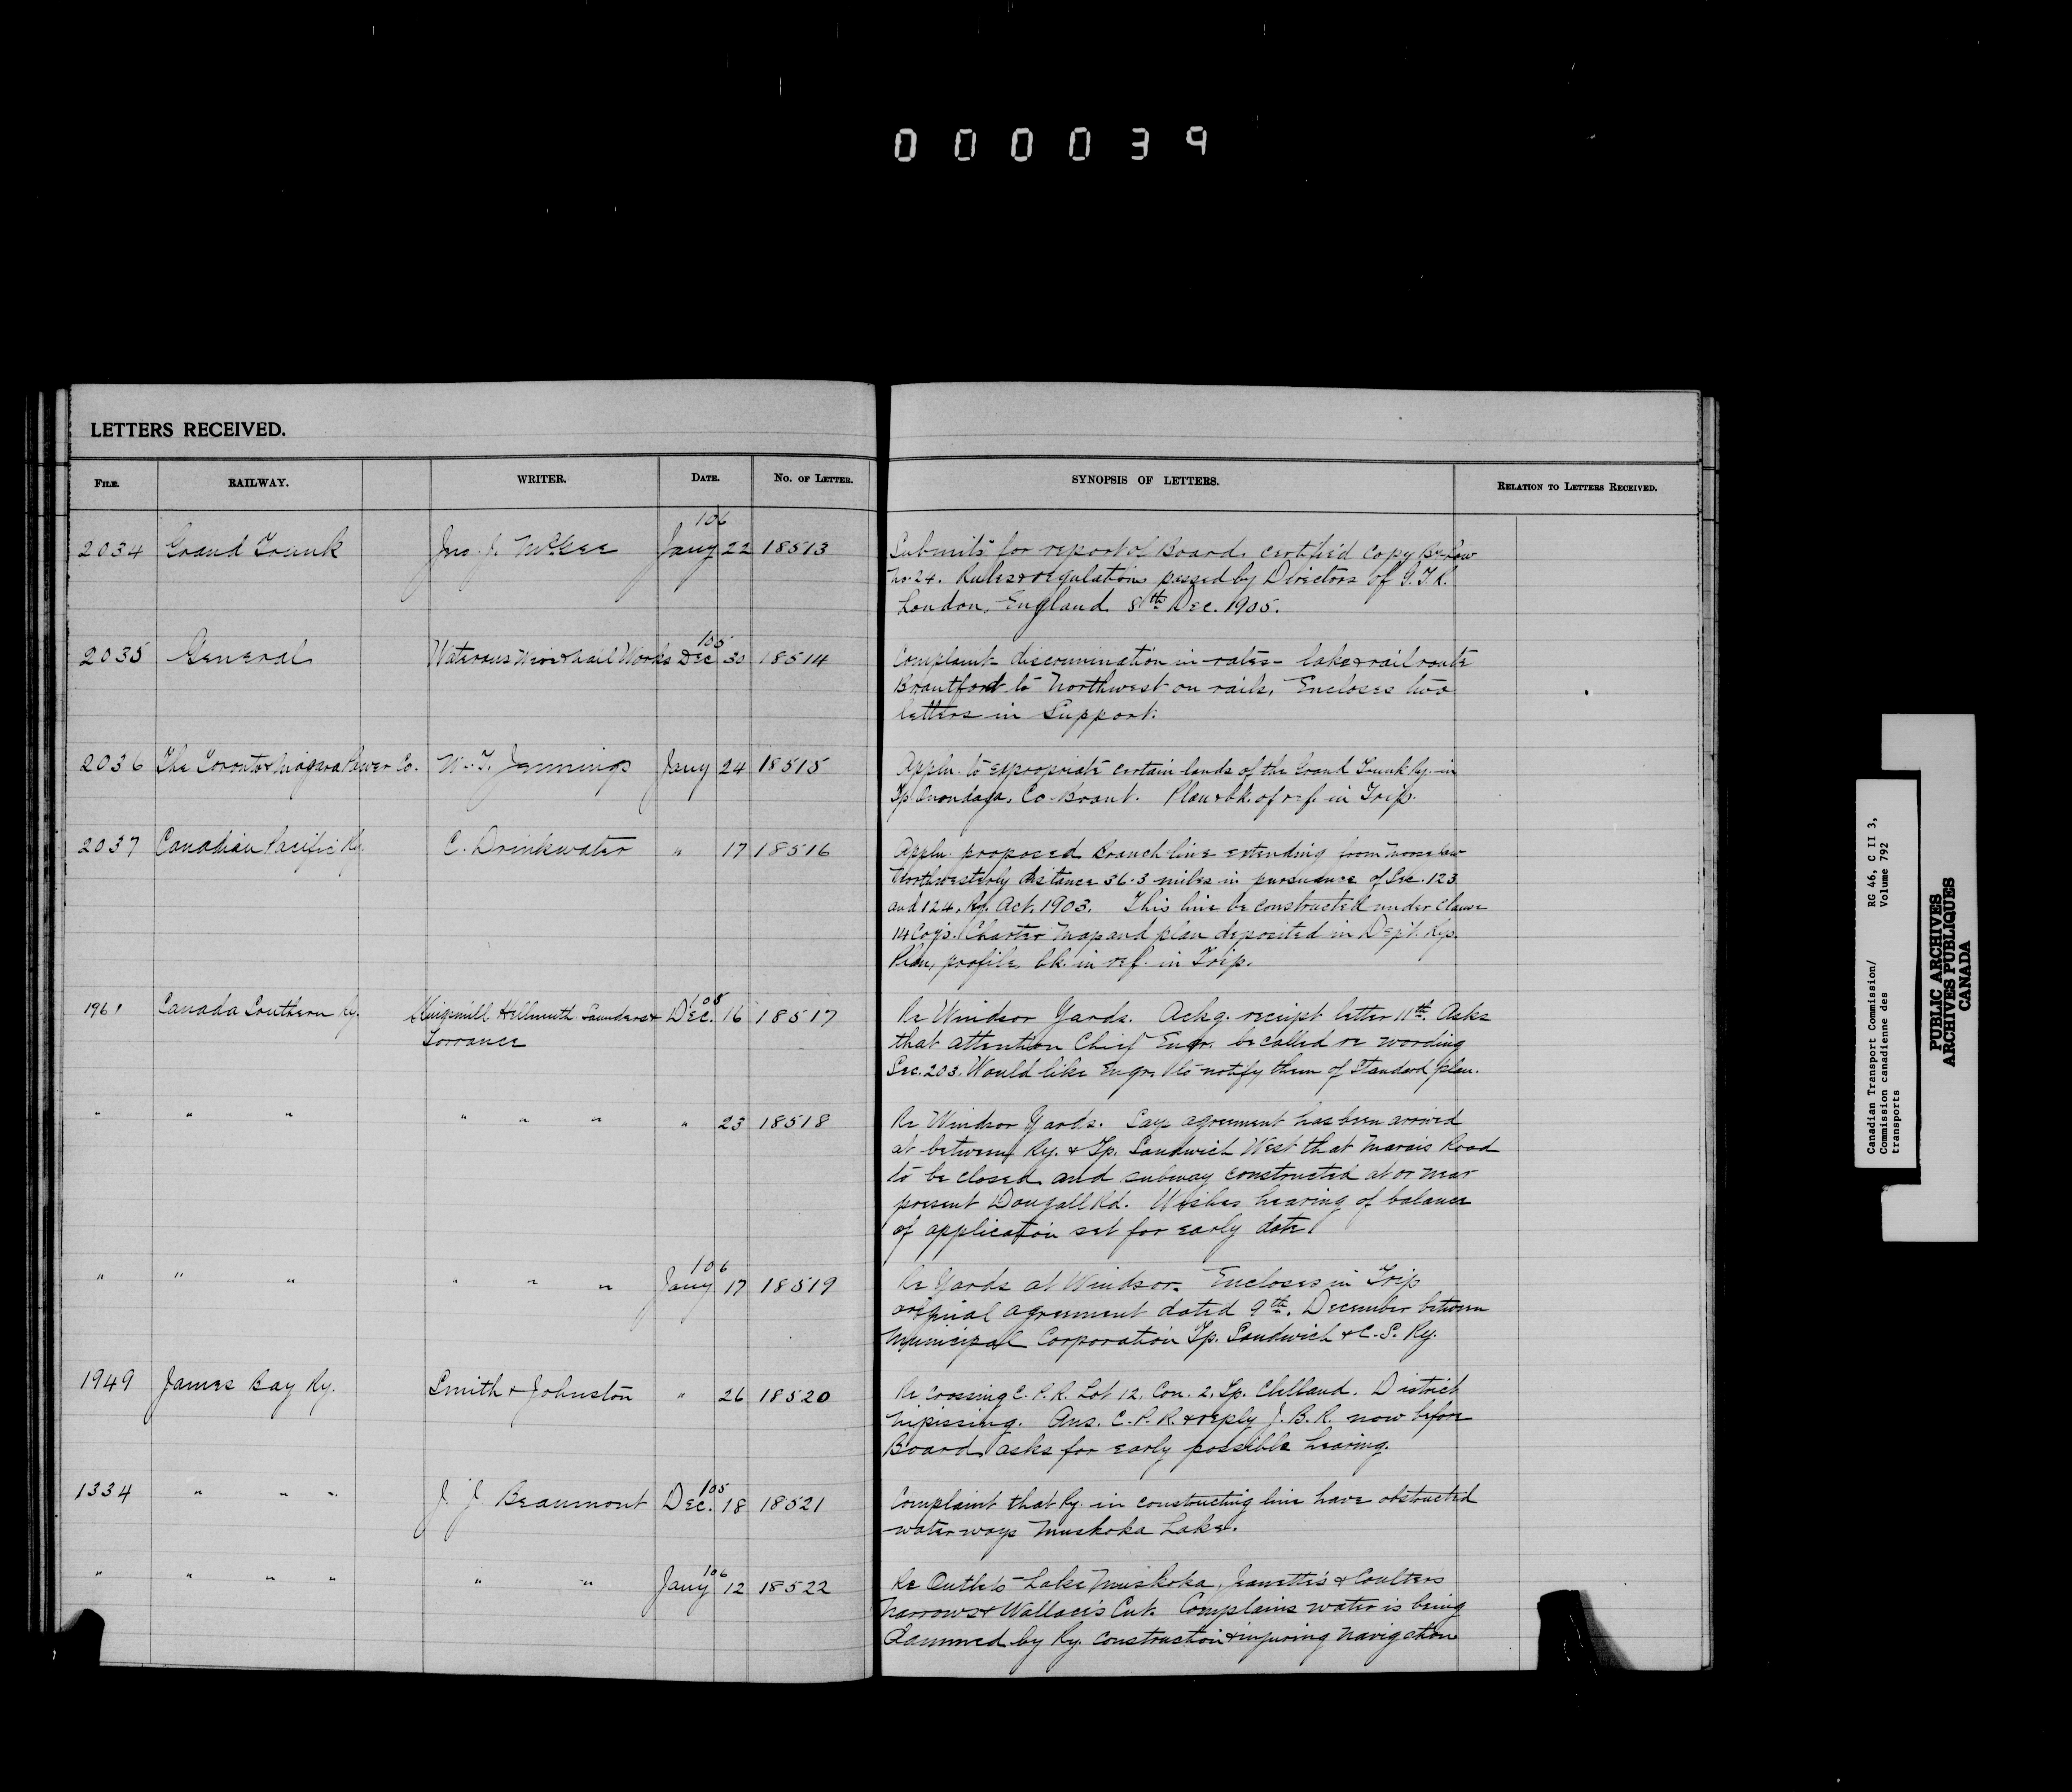 000039
LETTERS RECEIVED.
FILE. RAILWAY. WRITER. DATE. NO. OF LETTER. SYNOPSIS OF LETTERS. RELATION TO LETTERS RECEIVED.
'06
2034 Grand Trunk Jno. J. McGee Jany 22 18513 Submits for report of Board, certified copy By-law
No. 24. Rules & regulations passed by Directors of G.T.R.
London, England 8th Dec. 1905.
'05
2035 General Waterous Wire & Nail Works Dec 30 18514 Complaint discrimination in rates - lake & rail route
Brantford to Northwest on rails. Encloses two
letters in support.
2036 The Toronto & Niagara Power Co. W. T. Jennings Jany 24 18515 Appln. to expropriate certain lands of the Grand Trunk Ry. in
Tp. Onondaga, Co. Brant. Plan & bk. of ref. in Trip.
2037 Canadian Pacific Ry. C. Drinkwater " 17 18516 Appln. proposed Branch line extending from Moose Jaw
Northwesterly distance 36.3 miles in pursuance of Sec. 123
and 124, Ry. Act, 1903. This line be constructed under clause
14 Coy's. Charter Map and plan deposited in Dept. Rys.
Plan, profile, bk. in ref. in Trip.
'05
1961 Canada Southern Ry. Kingsmill Hellmuth Saunders & Dec. 16 18517 Re Windsor Yards. Ackg. receipt letter 11th. Asks
Torrance that attention Chief Engr. be called re wording
Sec. 203. Would like Engr. to notify them of Standard plan.
" " " " " " " 23 18518 Re Windsor Yards. Says agreement has been arrived
at between Ry. & Tp. Sandwich West that Marais Road
to be closed and subway constructed at or near
present Dougall Rd. Wishes hearing of balance
of application set for early date.
'06
" " " " " " Jany 17 18519 Re Yards at Windsor. Encloses in Trip
original agreement dated 9th. December between
Municipal Corporation Tp. Sandwich & C. S. Ry.
1949 James Bay Ry. Smith & Johnston " 26 18520 Re crossing C. P. R. Lot 12, Con. 2, Tp. Clelland. District
Nipissing. Ans. C. P. R. & reply J. B. R. now before
Board, asks for early possible hearing.
'05
1334 " " " J. J. Beaumont Dec. 18 18521 Complaint that Ry. in constructing line have obstructed
water ways Muskoka Lake.
'06
" " " " " " Jany 12 18522 Re Outlets Lake Muskoka, Jeanette's & Coulters
Narrows & Wallace's Cut. Complains water is being
dammed by Ry. construction & injuring navigation
Canadian Transport Commission/ RG 46, C II 3,
Commission canadienne des Volume 792
transports
PUBLIC ARCHIVES
ARCHIVES PUBLIQUES
CANADA